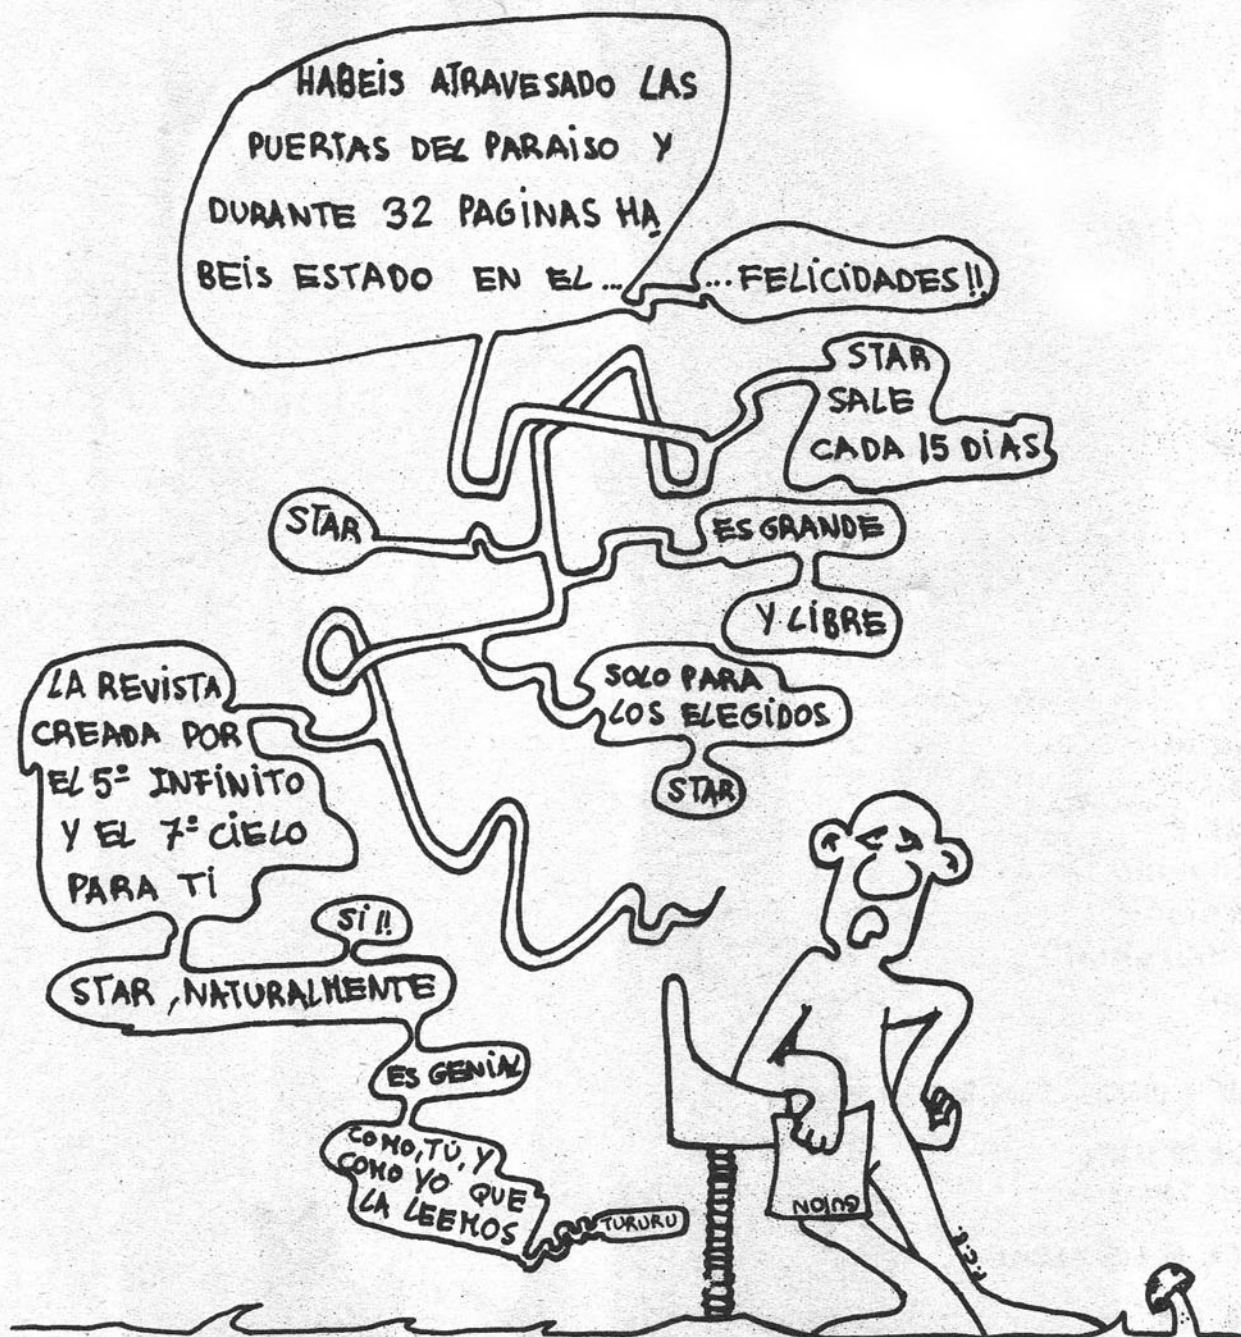 HABEIS ATRAVESADO LAS
PUERTAS DEL PARAISO Y
DURANTE 32 PAGINAS HA
BEIS ESTADO EN EL ...
... FELICIDADES!!
STAR
SALE
CADA 15 DIAS
STAR
ES GRANDE
Y LIBRE
SOLO PARA
LOS ELEGIDOS
STAR
LA REVISTA
CREADA POR
EL 5º INFINITO
Y EL 7º CIELO
PARA TI
SI!!
STAR, NATURALMENTE
ES GENIAL
COMO, TÚ, Y
COMO YO QUE
LA LEEMOS
TURURU
GUION